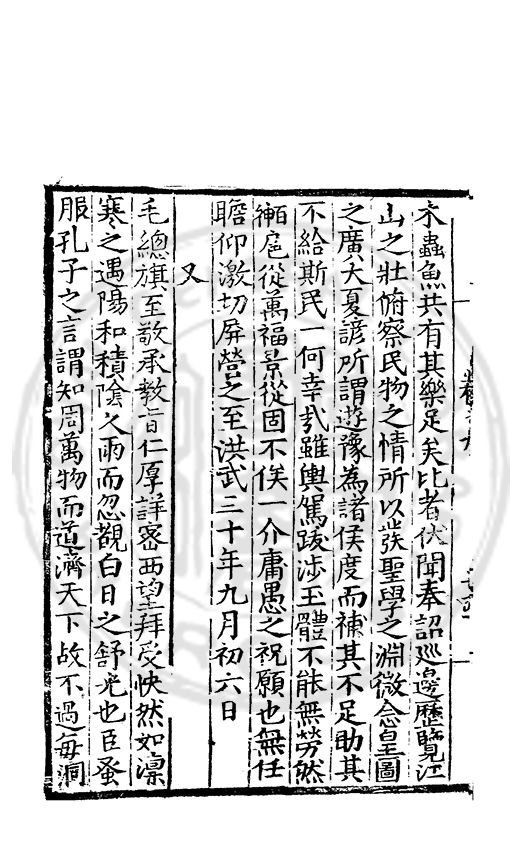 木蟲魚共有其樂足矣比者伏聞奉詔巡邊歷覽江
山之壯俯察民物之情所以發聖學之淵微念皇圖
之廣大夏諺所謂遊豫為諸侯度而補其不足助其
不給斯民一何幸哉雖輿駕跋涉玉體不能無勞然
扈從萬福景從固不俟一介庸愚之祝願也無任
瞻仰激切屏營之至洪武三十年九月初六日
又
毛總旗至敬承教旨仁厚詳密西望拜受怏然如凜
寒之遇陽和積陰久雨而忽覩白日之舒光也臣蚤
服孔子之言謂知周萬物而道濟天下故不過每洞